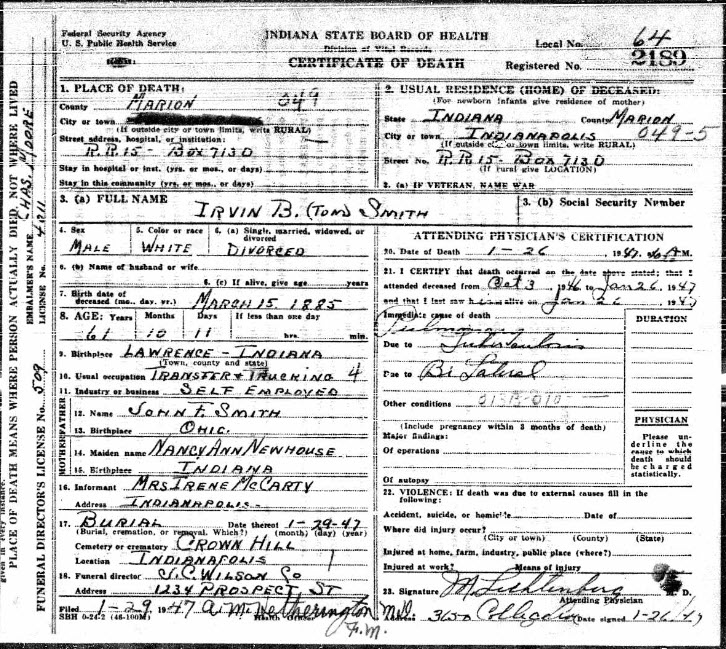 Federal Security Agency
U. S. Public Health Service
INDIANA STATE BOARD OF HEALTH
Division of Vital Records
CERTIFICATE OF DEATH
Local No. 64
Registered No. 2189
1. PLACE OF DEATH:
County MARION 049
City or town
(If outside city or town limits, write RURAL)
Street address, hospital, or institution:
R.R. 15 - Box 713D
Stay in hospital or inst. (yrs. or mos., or days)
Stay in this community (yrs. or mos., or days)
2. USUAL RESIDENCE (HOME) OF DECEASED:
(For newborn infants give residence of mother)
State INDIANA County MARION
City or town INDIANAPOLIS 049-5
(If outside city or town limits, write RURAL)
Street No. R.R. 15 - Box 713D
(If rural give LOCATION)
2. (a) IF VETERAN, NAME WAR
3. (a) FULL NAME IRVIN B. (TOM) SMITH
3. (b) Social Security Number
4. Sex MALE
5. Color or race WHITE
6. (a) Single, married, widowed, or divorced DIVORCED
6. (b) Name of husband or wife
6. (c) If alive, give age years
7. Birth date of deceased (mo., day, yr.) MARCH 15, 1885
8. AGE: Years Months Days If less than one day
61 10 11 hrs. min.
9. Birthplace LAWRENCE - INDIANA
(Town, county and state)
10. Usual occupation TRANSFER & TRUCKING 4
11. Industry or business SELF EMPLOYED
FATHER
12. Name JOHN F. SMITH
13. Birthplace OHIO.
MOTHER
14. Maiden name NANCY ANN NEWHOUSE
15. Birthplace INDIANA
16. Informant MRS IRENE MCCARTY
Address INDIANAPOLIS -
17. BURIAL Date thereof 1-29-47
(Burial, cremation, or removal. Which?) (month) (day) (year)
Cemetery or crematory CROWN HILL
Location INDIANAPOLIS
18. Funeral director J.C. WILSON Co
Address 1234 PROSPECT ST
Filed 1-29 1947 A. M. Hetherington M.D.
SBH 0-24-2 (46-100M) Health Officer
F.M.
ATTENDING PHYSICIAN'S CERTIFICATION
20. Date of Death 1-26, 1947. 6 A M.
21. I CERTIFY that death occurred on the date above stated; that I
attended deceased from Oct 3 1946 to Jan 26, 1947
and that I last saw h alive on Jan 26 1947
Immediate cause of death DURATION
Pulmonary
Due to Tuberculosis
Due to Bi Lateral
Other conditions
(Include pregnancy within 3 months of death)
Major findings:
Of operations
Of autopsy
PHYSICIAN
Please underline the cause to which death should be charged statistically.
22. VIOLENCE: If death was due to external causes fill in the
following:
Accident, suicide, or homicide Date of
Where did injury occur?
(City or town) (County) (State)
Injured at home, farm, industry, public place (where?)
Injured at work? Means of injury
23. Signature M Lichtenberg M. D.
Attending Physician
Address: 3650 Date signed 1-26-47
given in every instance.
PLACE OF DEATH MEANS WHERE PERSON ACTUALLY DIED, NOT WHERE LIVED
EMBALMER'S NAME CHAS. MOORE
LICENSE No. 4211
FUNERAL DIRECTOR'S LICENSE No. 509